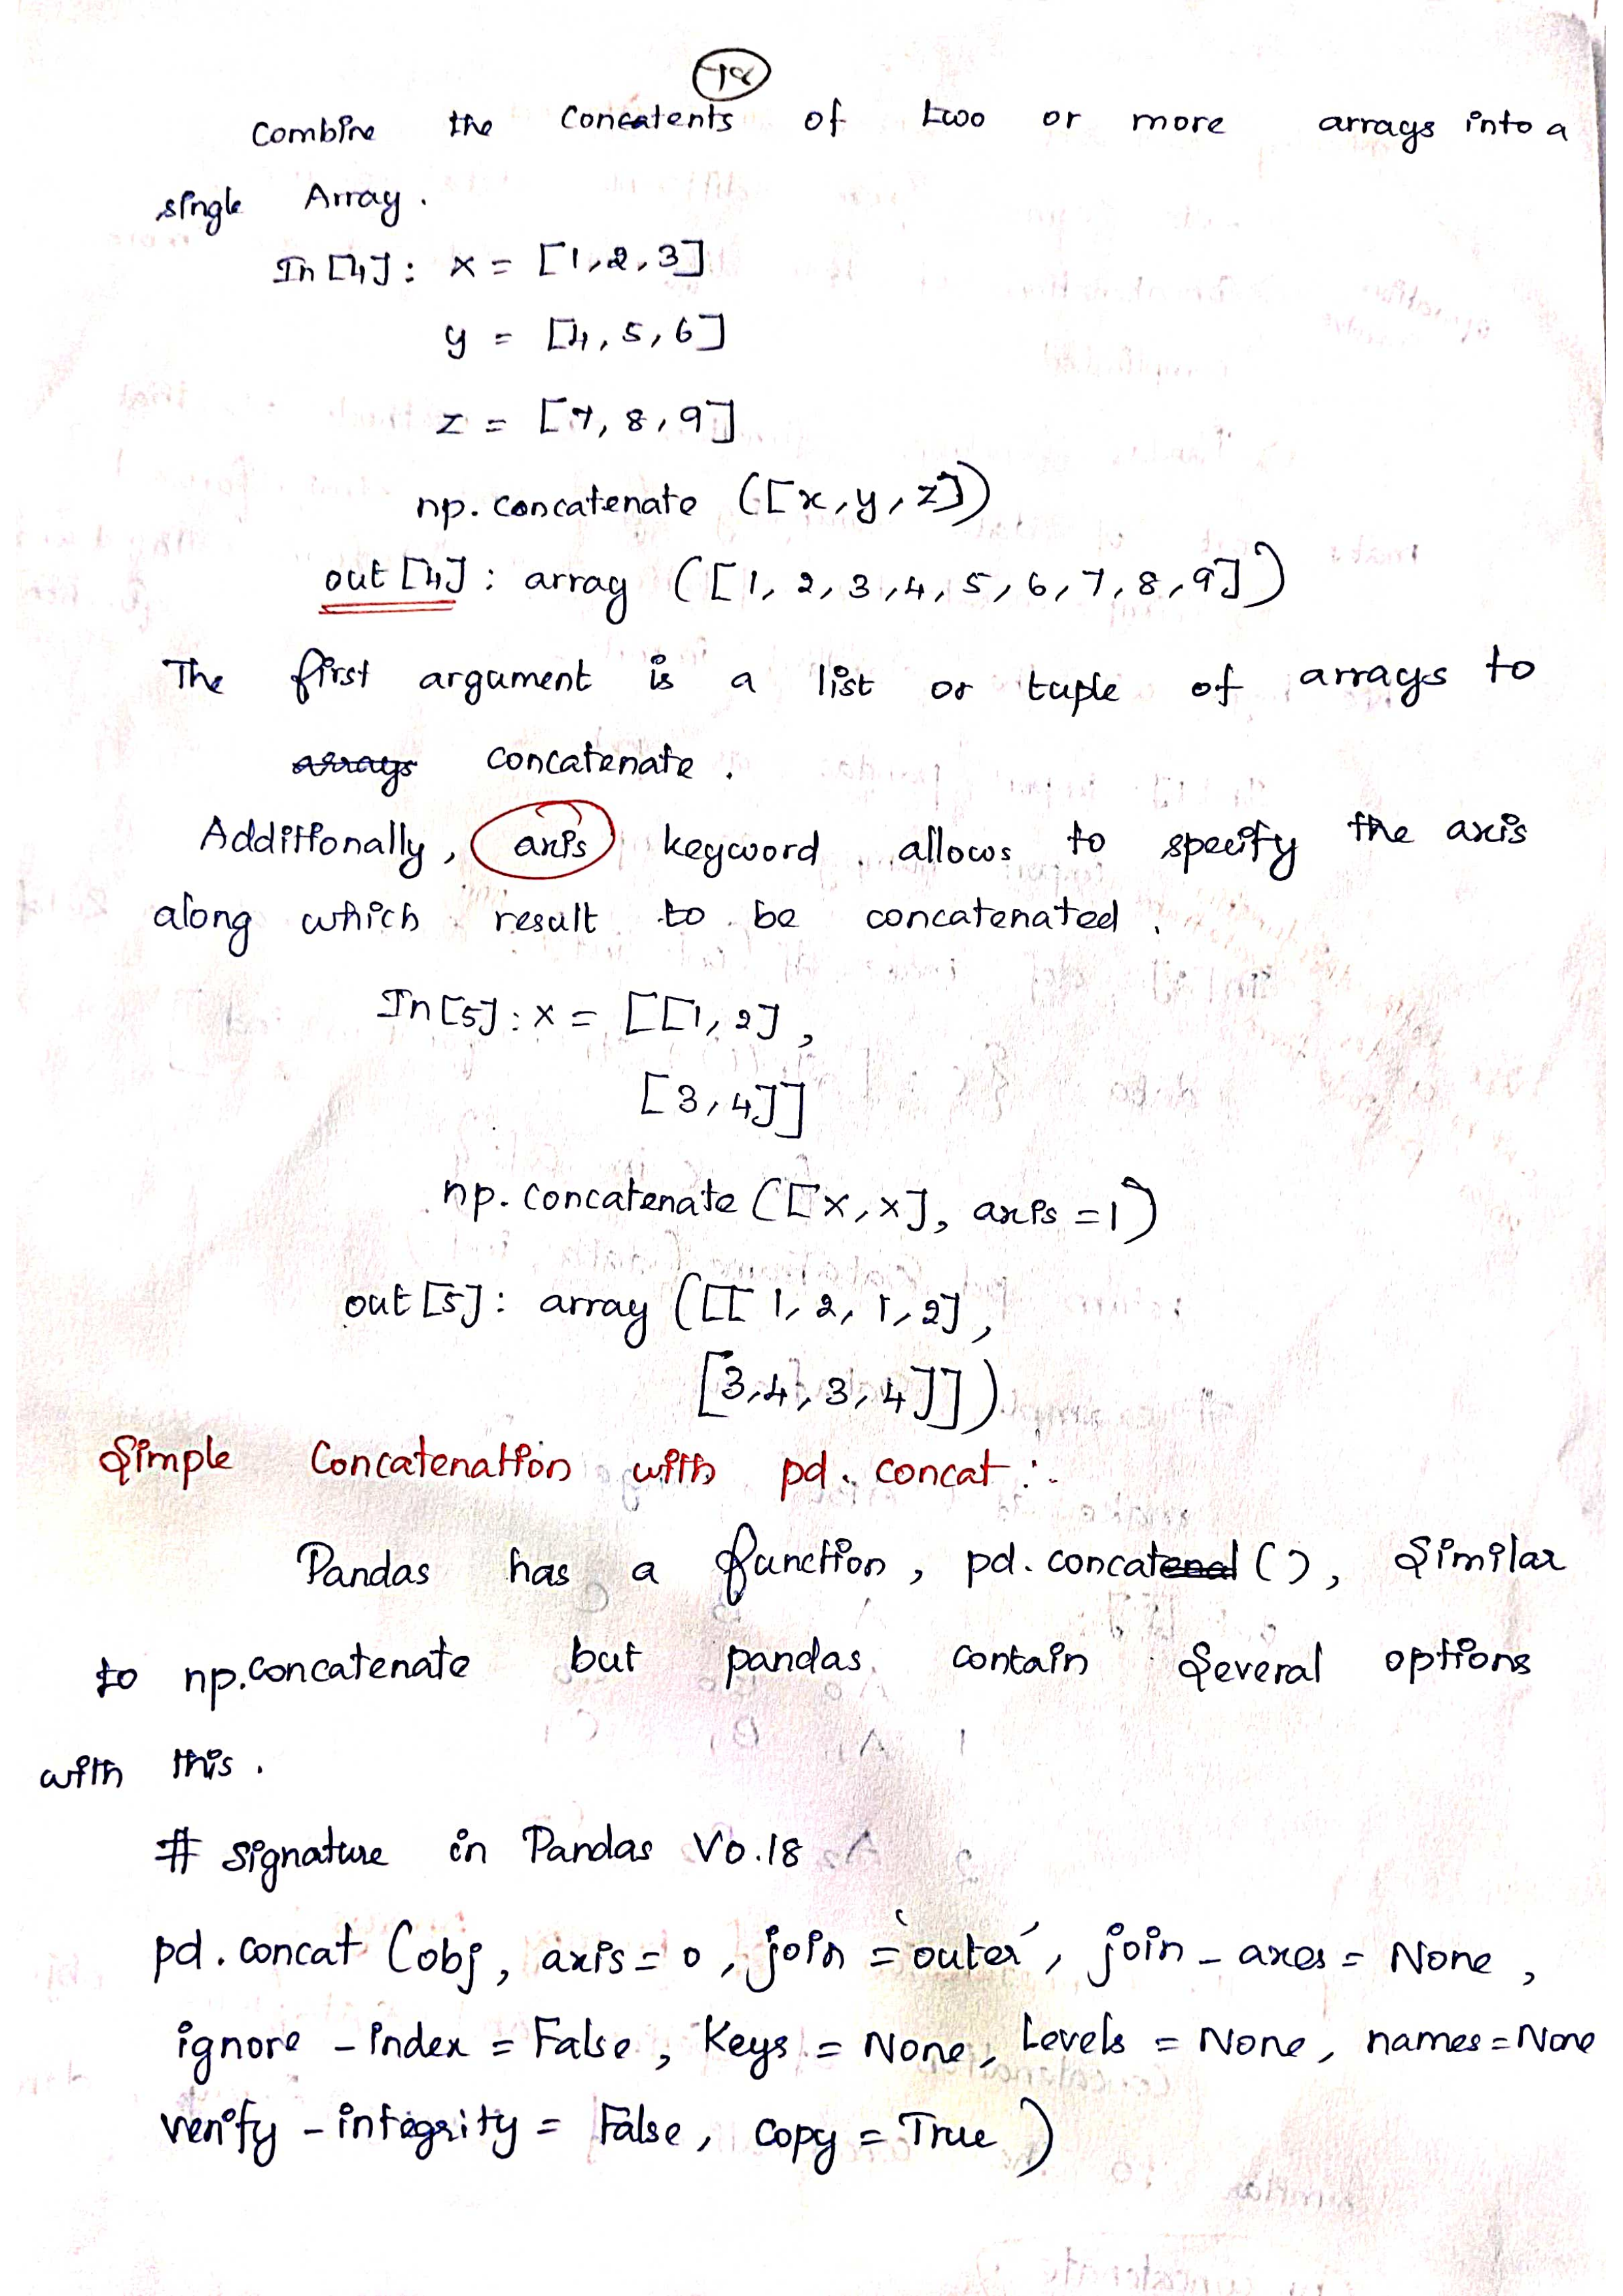 Combine the Concatents of two or more arrays into a
single Array.
In [4]: x = [1,2,3]
y = [4,5,6]
z = [7,8,9]
np.concatenate ([x,y,z])
out [4]: array ([1,2,3,4,5,6,7,8,9])
The first argument is a list or tuple of arrays to
arrays concatenate.
Additionally, axis keyword allows to specify the axis
along which result to be concatenated.
In [5]: x = [[1,2],
[3,4]]
np.concatenate ([x,x], axis =1)
out [5]: array ([[1,2,1,2],
[3,4,3,4]])
Simple Concatenation with pd.concat :-
Pandas has a function, pd.concatenat (), Similar
to np.concatenate but pandas contain Several options
with this.
# Signature in Pandas V0.18
pd.concat (obj, axis=0, join='outer', join_axes = None,
ignore_index = False, Keys = None, Levels = None, names=None
verify_integrity = False, copy = True)